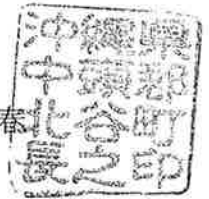 沖繩縣
中頭郡
春
北谷町
長之印